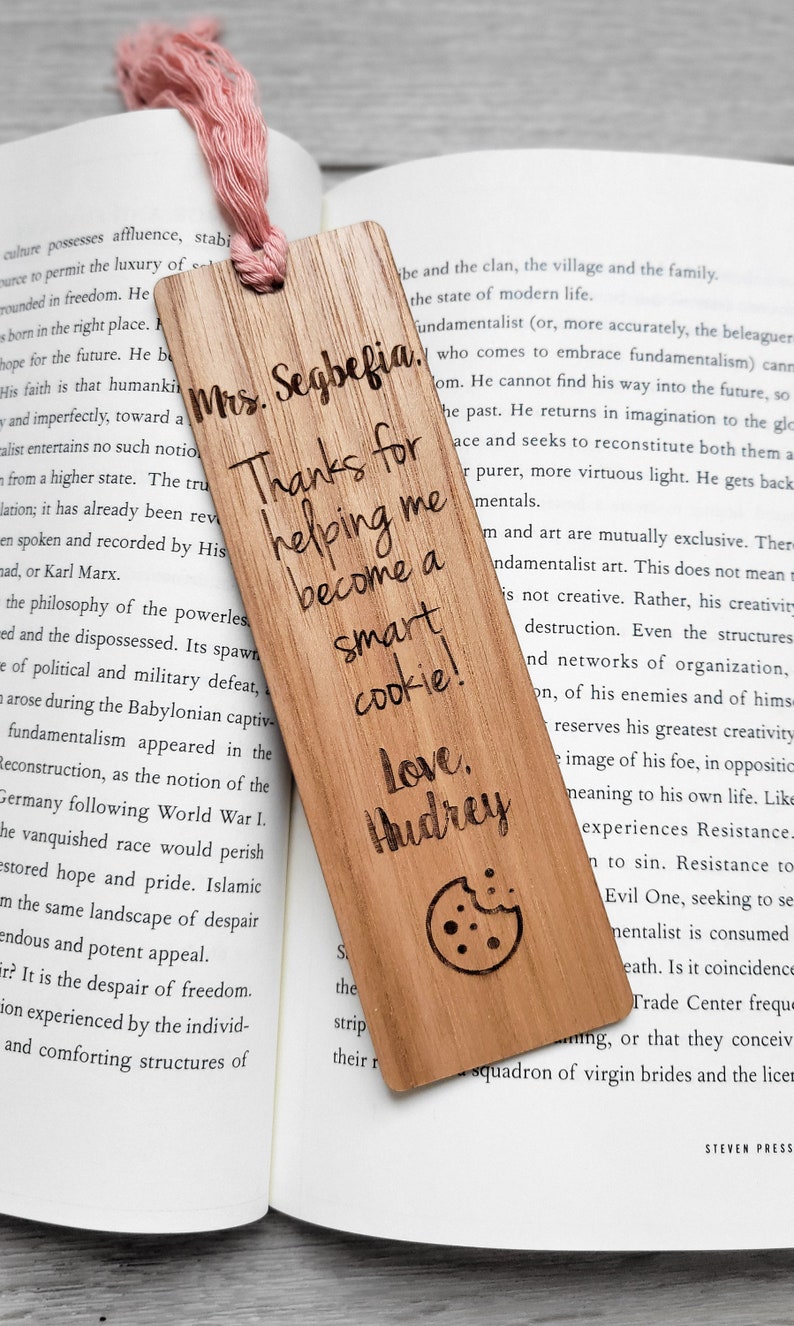 culture possesses affluence, stabi
ource to permit the luxury of
rounded in freedom. He
s born in the right place.
hope for the future. He be
His faith is that humankin
y and imperfectly, toward a
alist entertains no such notio
n from a higher state. The tru
lation; it has already been rev
en spoken and recorded by His
nad, or Karl Marx.
the philosophy of the powerless
ed and the dispossessed. Its spawn
e of political and military defeat,
n arose during the Babylonian captiv-
fundamentalism appeared in the
Reconstruction, as the notion of the
Germany following World War I.
he vanquished race would perish
estored hope and pride. Islamic
m the same landscape of despair
endous and potent appeal.
ir? It is the despair of freedom.
ion experienced by the individ-
and comforting structures of
Mrs. Segbefia,
Thanks for
helping me
become a
smart
cookie!
Love,
Audrey
ibe and the clan, the village and the family.
the state of modern life.
fundamentalist (or, more accurately, the beleaguere
who comes to embrace fundamentalism) cann
om. He cannot find his way into the future, so
he past. He returns in imagination to the glo
ace and seeks to reconstitute both them a
r purer, more virtuous light. He gets back
mentals.
m and art are mutually exclusive. There
ndamentalist art. This does not mean t
is not creative. Rather, his creativity
destruction. Even the structures
nd networks of organization,
on, of his enemies and of himse
reserves his greatest creativity
image of his foe, in oppositio
meaning to his own life. Like
experiences Resistance.
n to sin. Resistance to
Evil One, seeking to se
mentalist is consumed
eath. Is it coincidence
the Trade Center freque
strip aming, or that they conceiv
their r a squadron of virgin brides and the licen
STEVEN PRESS